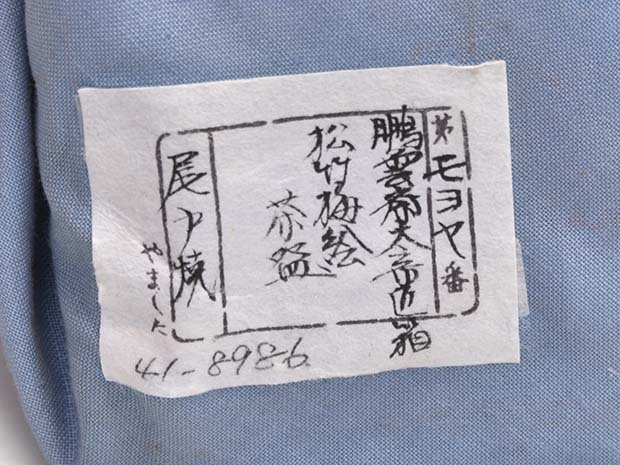 第モヨヤ番
鵬雲斎大宗匠箱
松竹梅絵
茶盌
尾戸焼
やました
41-8986